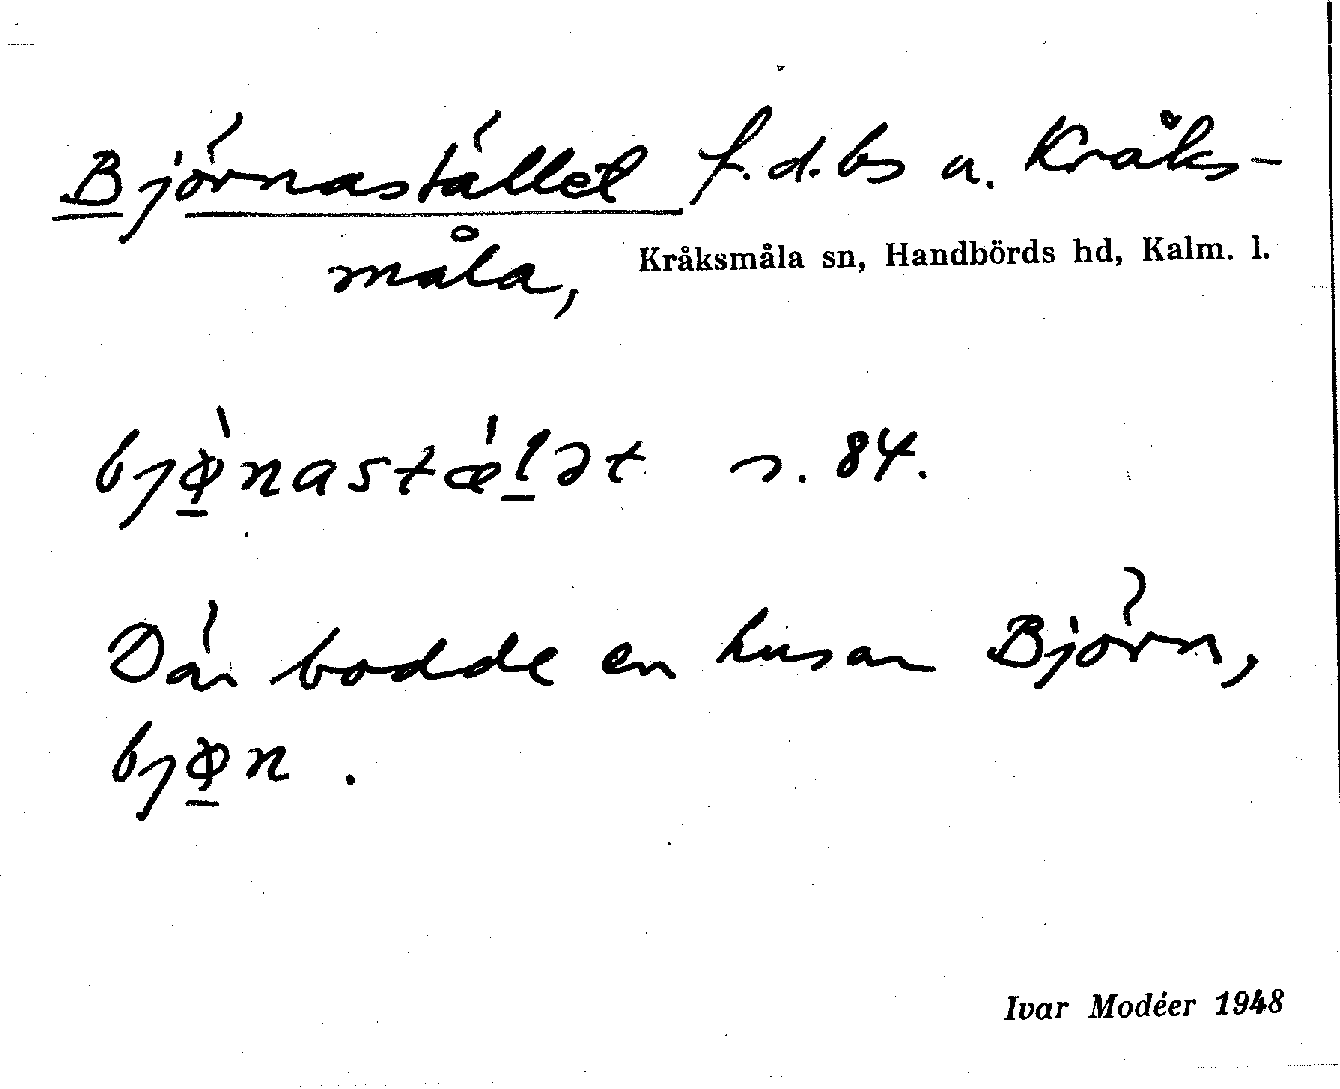 Björnastället f.d. bs u. Kråks-
måla, Kråksmåla sn, Handbörds hd, Kalm. l.
bjø̱̀nastǽḻət s. 84.
Där bodde en husar Björn,
bjø̱n .
Ivar Modéer 1948